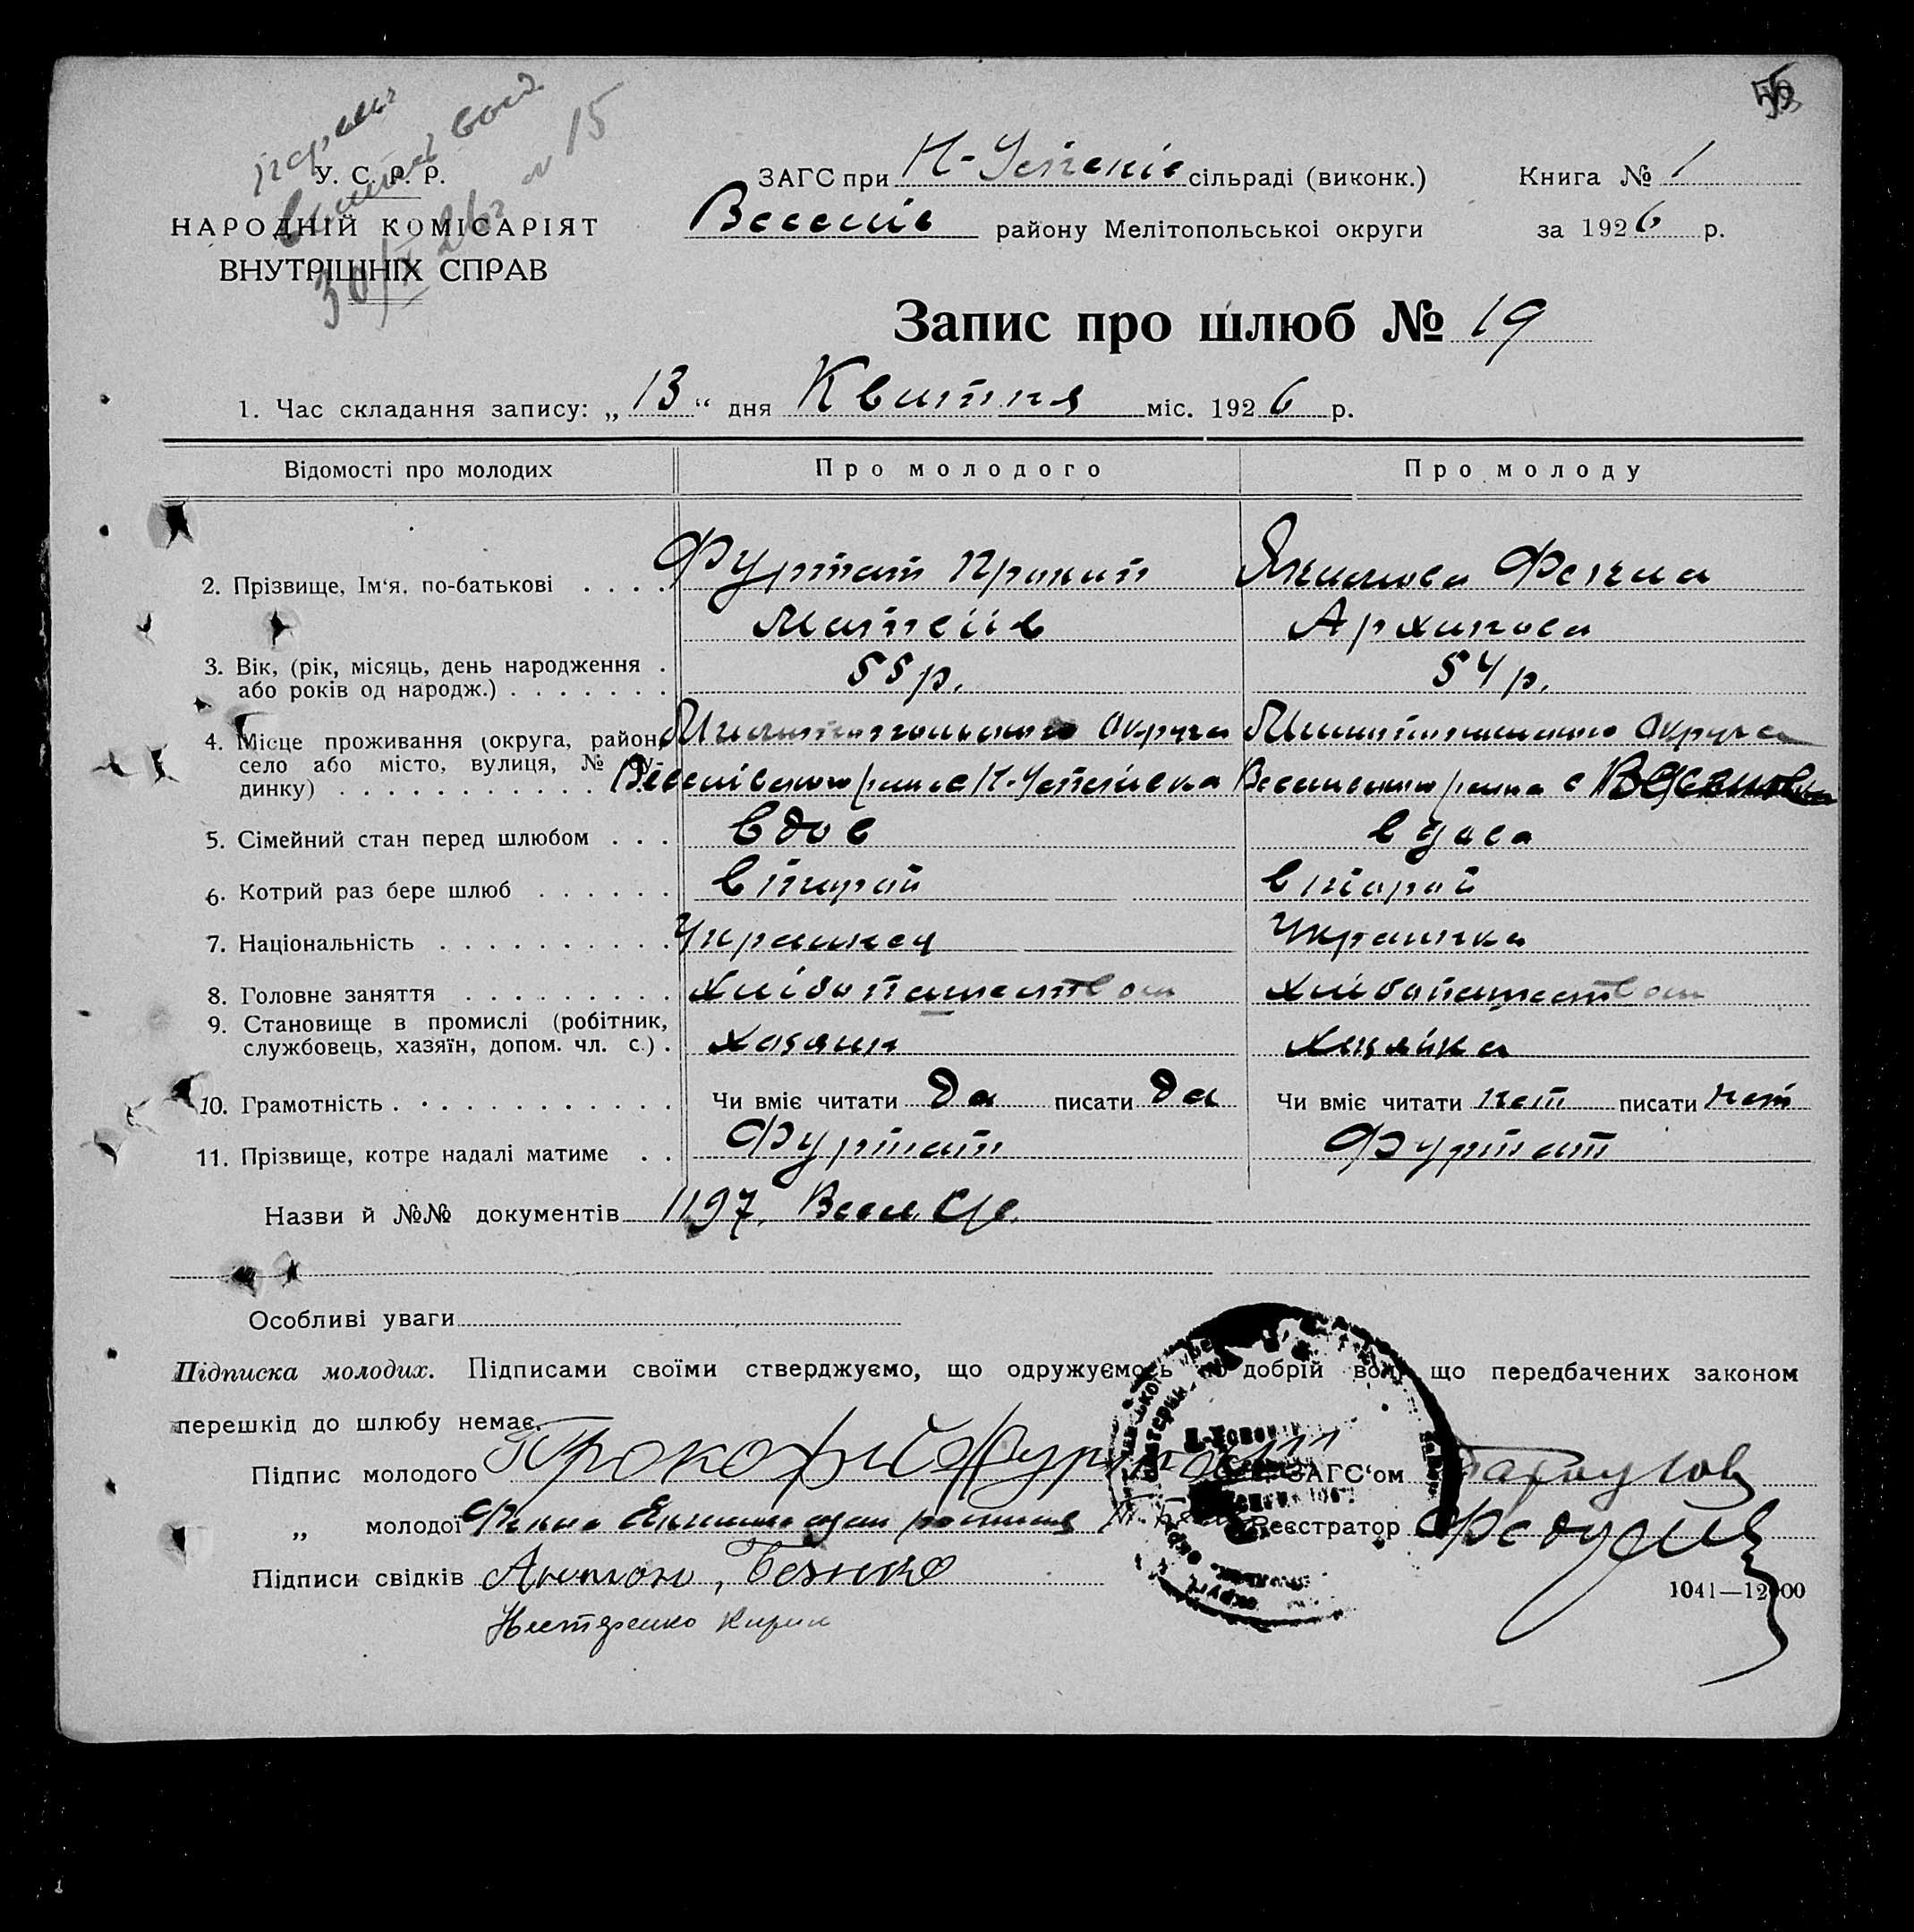 У. С. Р. Р.
НАРОДНІЙ КОМІСАРІЯТ
ВНУТРІШНІХ СПРАВ
№ 15
ЗАГС при Н-Успеків сільраді (виконк.)
Веселів району Мелітопольської округи
Книга № 1
за 1926 р.
Запис про шлюб № 19
1. Час складання запису: „ 13 “ дня Квитня міс. 1926 р.
Відомості про молодих Про молодого Про молоду
2. Прізвище, Ім‘я, по-батькові . . . . Фуртат Прокип Фекла
Матвеїів Архипова
3. Вік, (рік, місяць, день народження . 55 р. 54 р.
або років од народж.) . . . . . . .
4. Місце проживання (округа, район, Мелитопольского Округа Мелитопольского Округа
село або місто, вулиця, № бу-
динку) . . . . . . . . . . . Веселівского рана с Н-Успеівка Веселивского рана с
5. Сімейний стан перед шлюбом . . . вдов вдова
6. Котрий раз бере шлюб . . . . . . второй второй
7. Національність . . . . . . . . . . Украинец Украинка
8. Головне заняття . . . . . . . . . хлібопашеством хлібопашеством
9. Становище в промислі (робітник,
службовець, хазяїн, допом. чл. с.) . хозяин хозяйка
10. Грамотність . . . . . . . . . . . . Чи вміє читати да писати да Чи вміє читати нет писати нет
11. Прізвище, котре надалі матиме . . Фуртат Фуртат
Назви й №№ документів 1197. Весел.
Особливі уваги
Підписка молодих. Підписами своїми стверджуємо, що одружуємось по добрій волі, що передбачених законом
перешкід до шлюбу немає.
Підпис молодого Прокофий Фуртат ЗАГС‘ом
„ молодої Реєстратор
Підписи свідків Антон,
Нестеренко Кирил
1041—12000